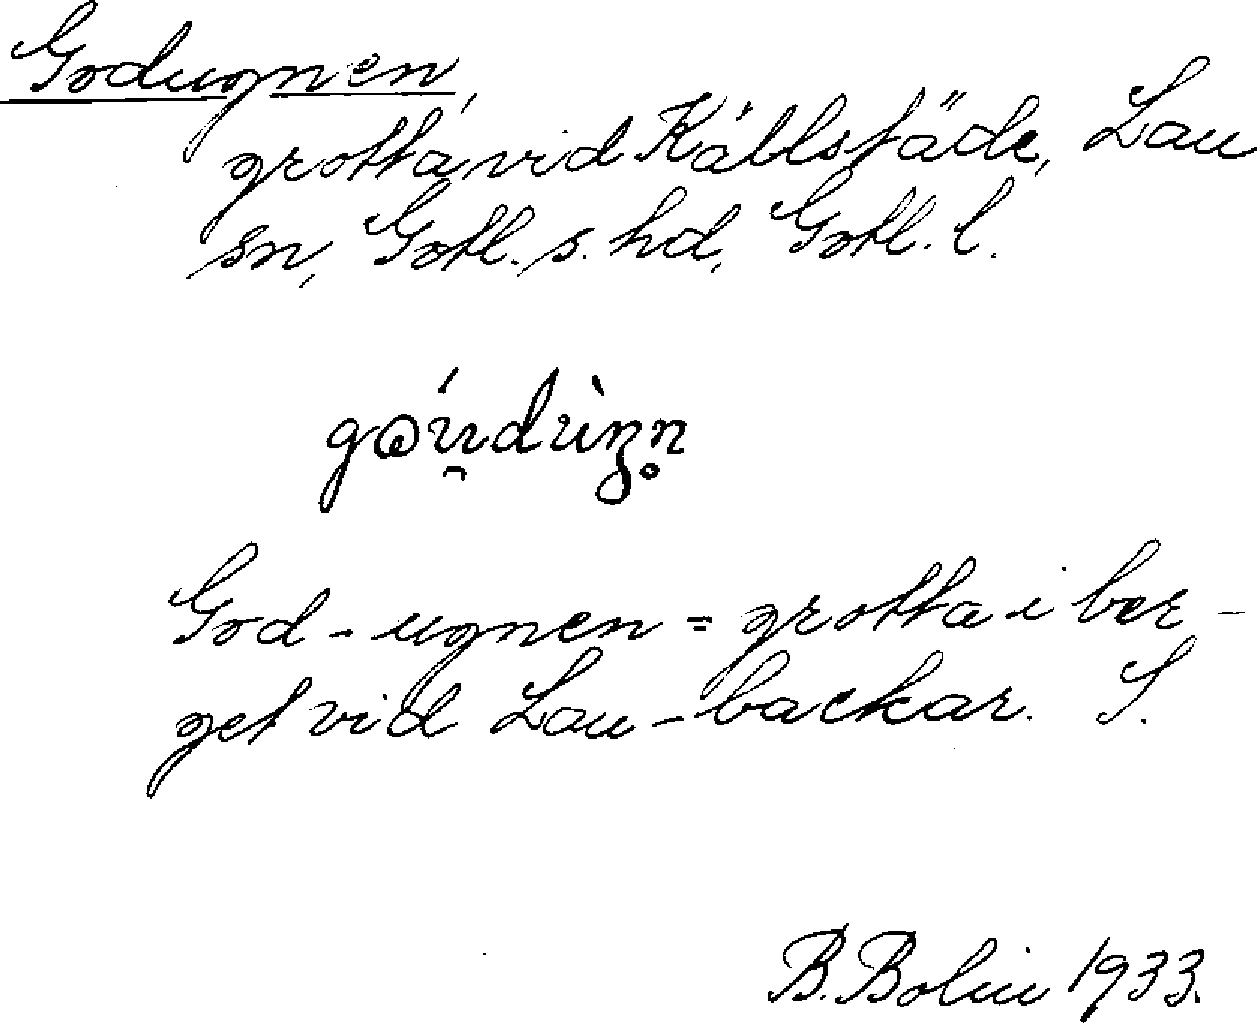 Godugnen,
grotta vid Källstäde, Lau
sn, Gotl. s. hd, Gotl. l.
God-ugnen = grotta i ber-
get vid Lau-backar. S.
B. Bolin 1933.